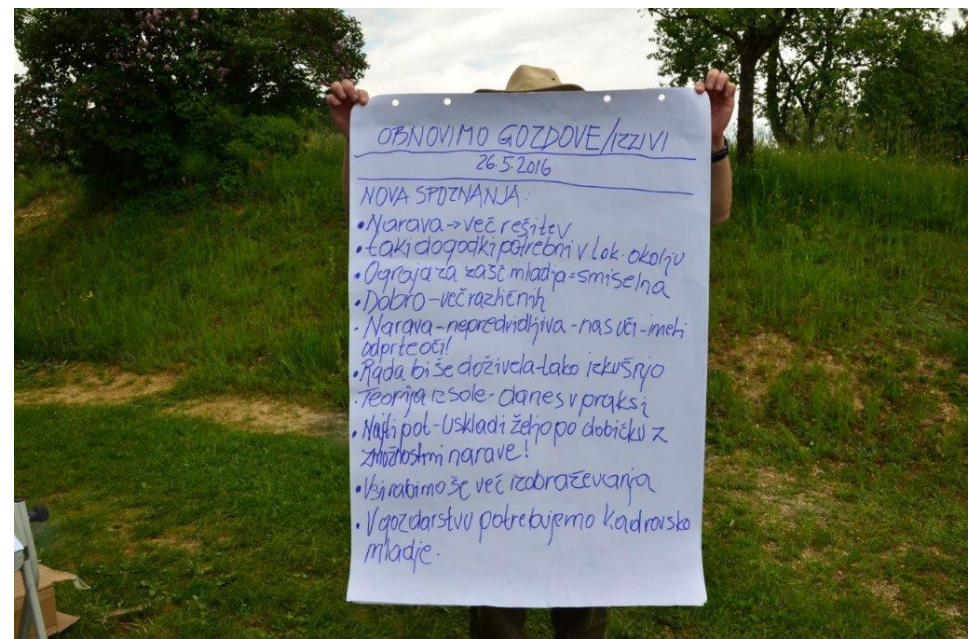 OBNOVIMO GOZDOVE/IZZIVI
26.5.2016
NOVA SPOZNANJA:
• Narava → več rešitev
• taki dogodki potrebni v lok. okolju
• Ograja za zašč mladja = smiselna
• Dobro - več različnih
• Narava - nepredvidljiva - nas uči - imeti
odprte oči!
• Rada bi še doživela tako izkušnjo
• Teorija iz šole - danes v praksi
• Najti pot - uskladi željo po dobičku z
zmožnostmi narave!
• Vsi rabimo še več izobraževanja
• V gozdarstvu potrebujemo kadrovsko
mladje.